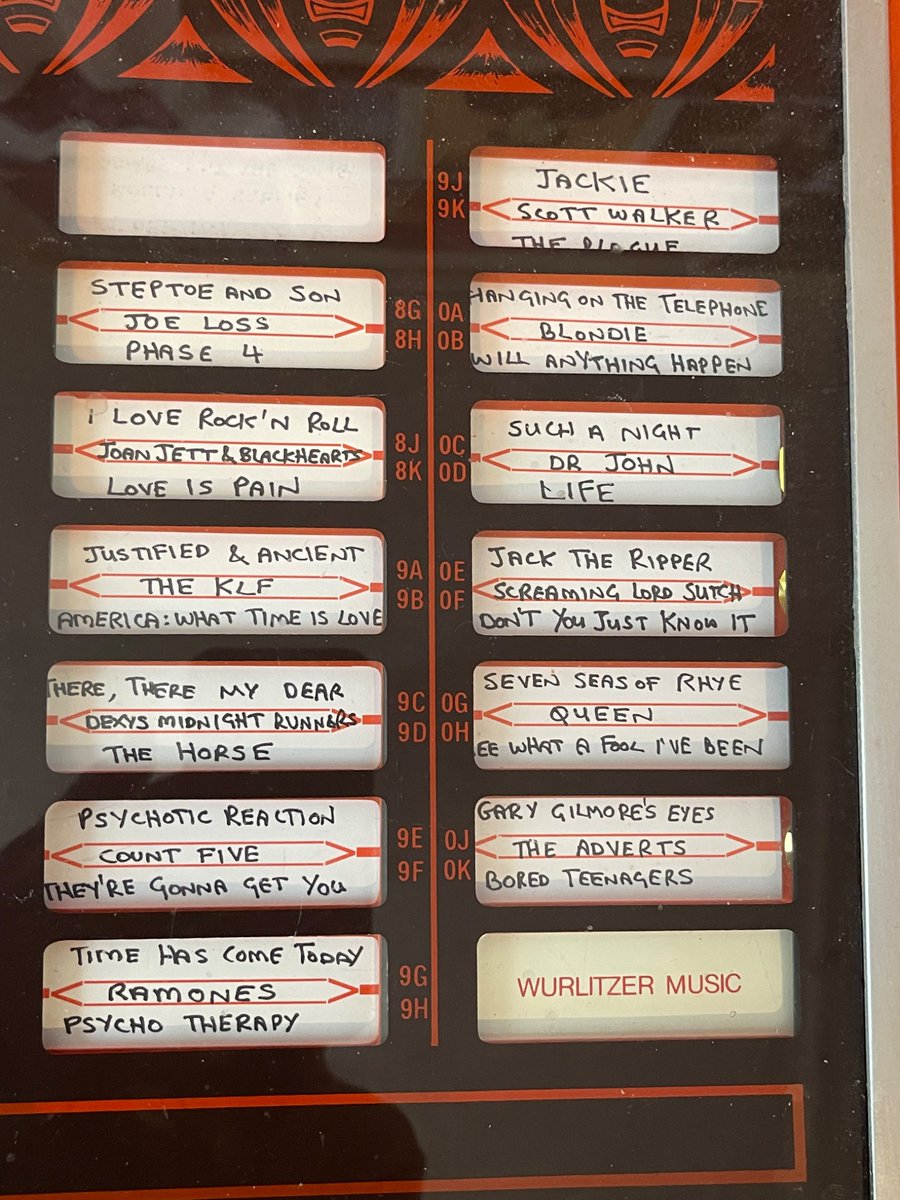 STEPTOE AND SON
JOE LOSS
PHASE 4
8G
8H
I LOVE ROCK'N ROLL
JOAN JETT & BLACKHEARTS
LOVE IS PAIN
8J
8K
JUSTIFIED & ANCIENT
THE KLF
AMERICA: WHAT TIME IS LOVE
9A
9B
THERE, THERE MY DEAR
DEXYS MIDNIGHT RUNNERS
THE HORSE
9C
9D
PSYCHOTIC REACTION
COUNT FIVE
THEY'RE GONNA GET YOU
9E
9F
TIME HAS COME TODAY
RAMONES
PSYCHO THERAPY
9G
9H
9J
9K
JACKIE
SCOTT WALKER
THE PLAGUE
0A
0B
HANGING ON THE TELEPHONE
BLONDIE
WILL ANYTHING HAPPEN
0C
0D
SUCH A NIGHT
DR JOHN
LIFE
0E
0F
JACK THE RIPPER
SCREAMING LORD SUTCH
DON'T YOU JUST KNOW IT
0G
0H
SEVEN SEAS OF RHYE
QUEEN
EE WHAT A FOOL I'VE BEEN
0J
0K
GARY GILMORE'S EYES
THE ADVERTS
BORED TEENAGERS
WURLITZER MUSIC